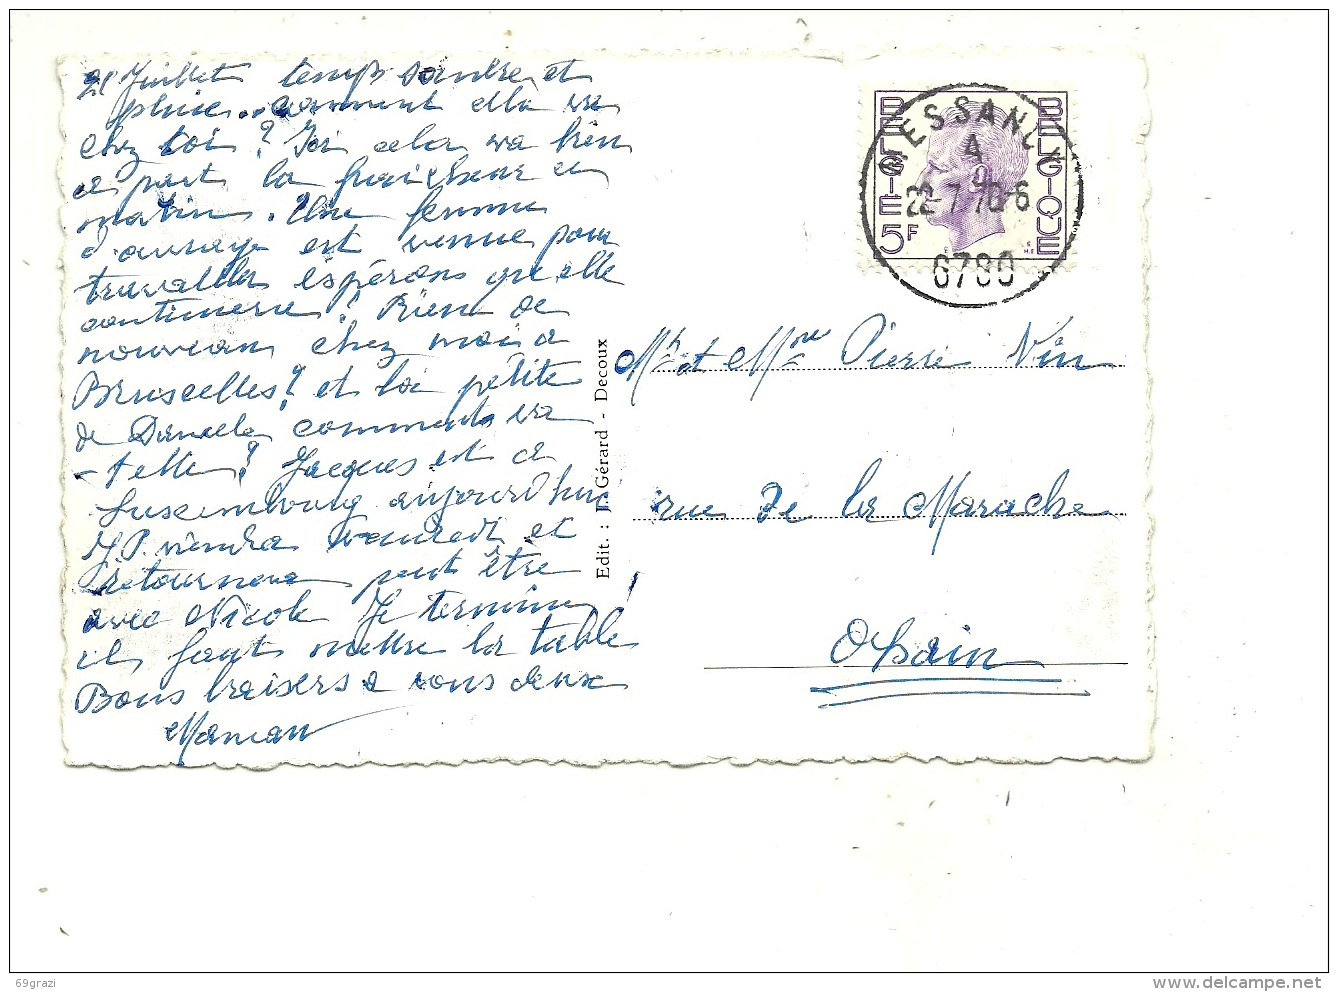 21 Juillet temps sombre et
pluie.. comment cella va
chez toi ? Ici cela va bien
a part la fraicheur du
matin. Une femme
d'ouvrage est venue pour
travailler espérons qu'elle
continuera ? Rien de
nouveau chez moi a
Bruxelles ? et la petite
de Danielle comment va
-telle ? Jacques est a
Luxembourg aujourd'hui
J.P. viendra vendredi et
retournera peut être
avec Nicole Je termine
il faut mettre la table !
Bons baisers a vous deux
Maman
Edit. : J. Gérard - Decoux
BELGIE 5F
BELGIQUE
BESSANLX
A
22-7 70-6
6780
Mr et Mme Pierre Nin
rue de la Marache
Ohain
69grazi
www.delcampe.net